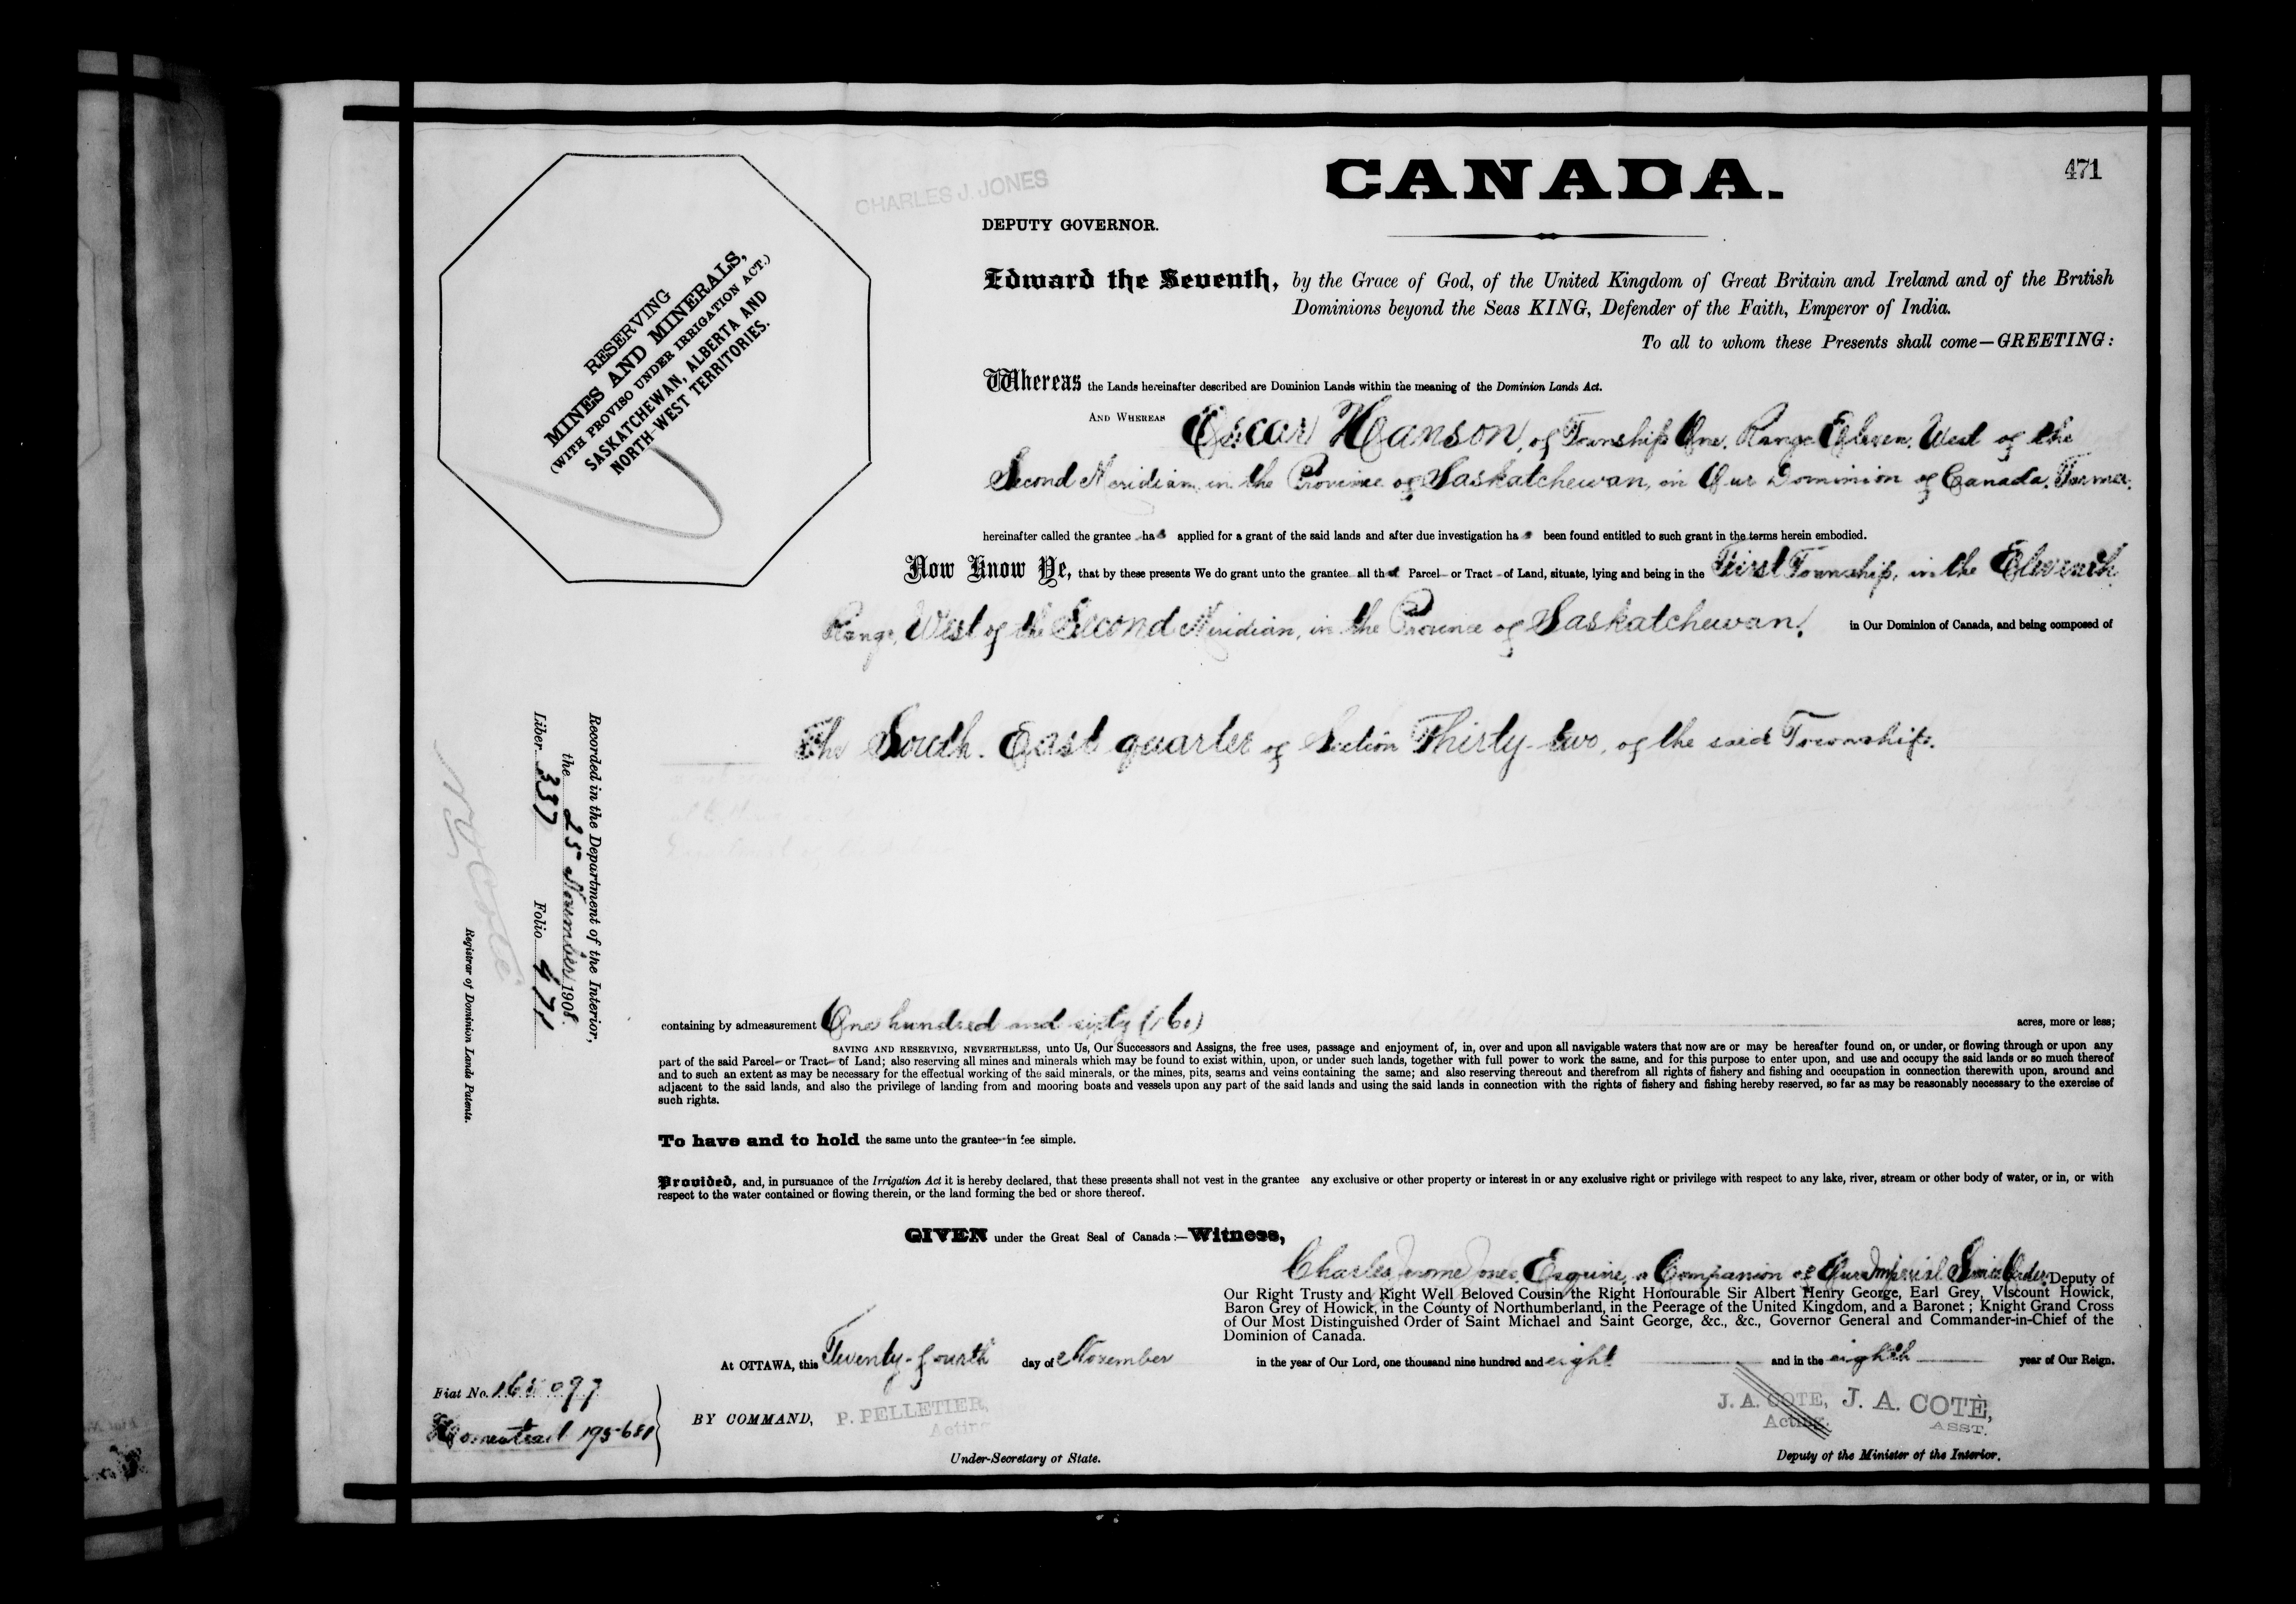 CANADA.
471
CHARLES J. JONES
DEPUTY GOVERNOR.
RESERVING
MINES AND MINERALS,
(WITH PROVISO UNDER IRRIGATION ACT.)
SASKATCHEWAN, ALBERTA AND
NORTH-WEST TERRITORIES.
Edward the Seventh, by the Grace of God, of the United Kingdom of Great Britain and Ireland and of the British
Dominions beyond the Seas KING, Defender of the Faith, Emperor of India.
To all to whom these Presents shall come—GREETING:
Whereas the Lands hereinafter described are Dominion Lands within the meaning of the Dominion Lands Act.
AND WHEREAS Oscar Hanson, of Township One, Range Eleven, West of the
Second Meridian, in the Province of Saskatchewan, in Our Dominion of Canada, Farmer,
hereinafter called the grantee has applied for a grant of the said lands and after due investigation has been found entitled to such grant in the terms herein embodied.
Now Know Ye, that by these presents We do grant unto the grantee all that Parcel or Tract of Land, situate, lying and being in the First Township, in the Eleventh
Range, West of the Second Meridian, in the Province of Saskatchewan, in Our Dominion of Canada, and being composed of
The South East quarter of Section Thirty-two, of the said Township.
Recorded in the Department of the Interior,
the 25 November 1908.
Liber 337 Folio 471
Registrar of Dominion Lands Patents.
containing by admeasurement One hundred and sixty (160) acres, more or less;
SAVING AND RESERVING, NEVERTHELESS, unto Us, Our Successors and Assigns, the free uses, passage and enjoyment of, in, over and upon all navigable waters that now are or may be hereafter found on, or under, or flowing through or upon any
part of the said Parcel or Tract of Land; also reserving all mines and minerals which may be found to exist within, upon, or under such lands, together with full power to work the same, and for this purpose to enter upon, and use and occupy the said lands or so much thereof
and to such an extent as may be necessary for the effectual working of the said minerals, or the mines, pits, seams and veins containing the same; and also reserving thereout and therefrom all rights of fishery and fishing and occupation in connection therewith upon, around and
adjacent to the said lands, and also the privilege of landing from and mooring boats and vessels upon any part of the said lands and using the said lands in connection with the rights of fishery and fishing hereby reserved, so far as may be reasonably necessary to the exercise of
such rights.
To have and to hold the same unto the grantee in fee simple.
Provided, and, in pursuance of the Irrigation Act it is hereby declared, that these presents shall not vest in the grantee any exclusive or other property or interest in or any exclusive right or privilege with respect to any lake, river, stream or other body of water, or in, or with
respect to the water contained or flowing therein, or the land forming the bed or shore thereof.
GIVEN under the Great Seal of Canada:—Witness,
Charles Jerome Jones, Esquire, a Companion of Our Imperial Service Order, Deputy of
Our Right Trusty and Right Well Beloved Cousin the Right Honourable Sir Albert Henry George, Earl Grey, Viscount Howick,
Baron Grey of Howick, in the County of Northumberland, in the Peerage of the United Kingdom, and a Baronet; Knight Grand Cross
of Our Most Distinguished Order of Saint Michael and Saint George, &c., &c., Governor General and Commander-in-Chief of the
Dominion of Canada.
At OTTAWA, this Twenty-fourth day of November in the year of Our Lord, one thousand nine hundred and eight and in the eighth year of Our Reign.
Fiat No. 165097
Homestead 195681
BY COMMAND, P. PELLETIER,
Acting
Under-Secretary of State.
J. A. COTE, J. A. COTÈ,
Acting. ASST.
Deputy of the Minister of the Interior.